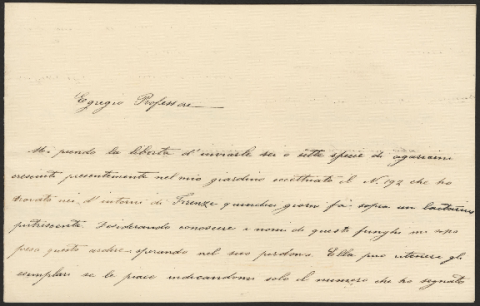 Egregio Professore
Mi prendo la libertà d'inviarle sei o sette specie di agaricini
crescenti presentemente nel mio giardino eccettuato il N. 192 che ho
trovato nei d'intorni di Firenze quindici giorni fa sopra un lactarius
putrescente Desiderando conoscere i nomi di questi funghi
questo ardire sperando nel suo perdono. Ella può ritenere gli
esemplari se le piace indicandomi solo il numero che ho segnato